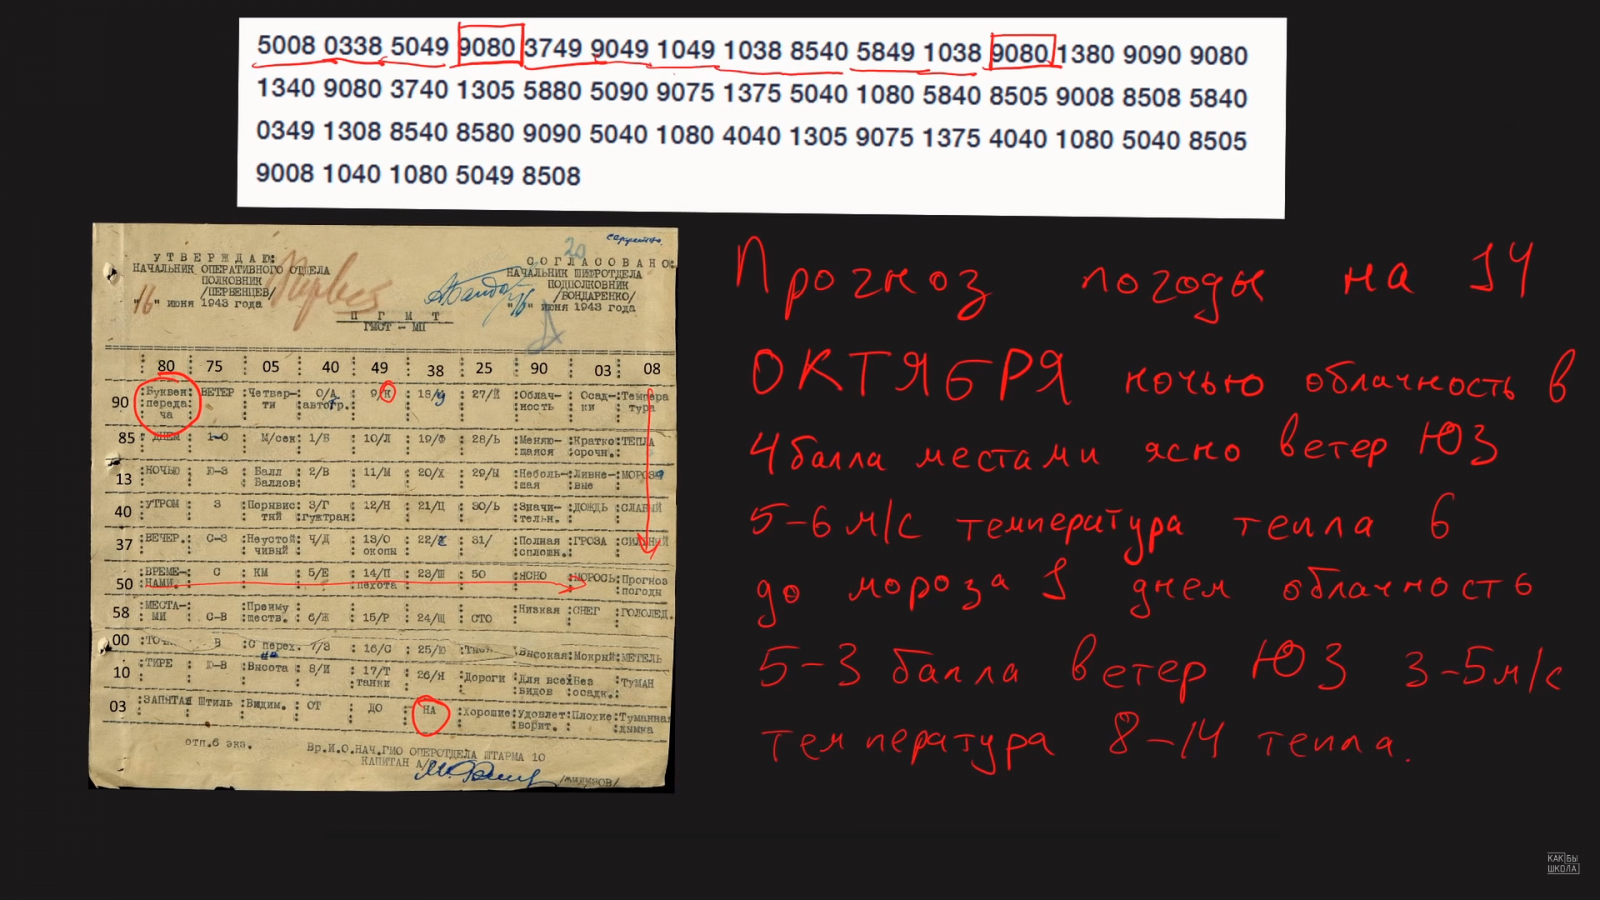 5008 0338 5049 9080 3749 9049 1049 1038 8540 5849 1038 9080 1380 9090 9080
1340 9080 3740 1305 5880 5090 9075 1375 5040 1080 5840 8505 9008 8508 5840
0349 1308 8540 8580 9090 5040 1080 4040 1305 9075 1375 4040 1080 5040 8505
9008 1040 1080 5049 8508
УТВЕРЖДАЮ:
НАЧАЛЬНИК ОПЕРАТИВНОГО ОТДЕЛА
ПОЛКОВНИК
/ПЕРВЕНЦЕВ/
"16" июня 1943 года
20
СОГЛАСОВАНО:
НАЧАЛЬНИК ШИФРОТДЕЛА
ПОДПОЛКОВНИК
/БОНДАРЕНКО/
июня 1943 года
П Г М Т
80 75 05 40 49 38 25 90 03 08
90 Буквен. переда- ча ВЕТЕР Четвер- ти 0/А автотр. 9/К 18/У 27/Й Облач- ность Осад- ки Темпера тура
85 ДНЕМ 1-0 М/сек 1/Б 10/Л 19/Ф 28/Ь Меняю- щаяся Кратко- срочн. ТЕПЛА
13 НОЧЬЮ Ю-З Балл Баллов 2/В 11/М 20/Х 29/Ы Неболь- шая Ливне- вые МОРОЗА
40 УТРОМ З Порывис- тый 3/Г гужтран. 12/Н 21/Ц 30/Ь Значи- тельн. ДОЖДЬ СЛАБЫЙ
37 ВЕЧЕР. С-З Неустой чивый 4/Д 13/О окопы 22/Ч 31/ Полная сплошн. ГРОЗА СИЛЬНЫЙ
50 ВРЕМЕ- НАМИ. С КМ 5/Е 14/П пехота 23/Ш 50 ЯСНО МОРОСЬ Прогноз погоды
58 МЕСТА- МИ С-В Преиму ществ. 6/Ж 15/Р 24/Щ СТО Низкая СНЕГ ГОЛОЛЕД.
00 В С перех. на 7/З 16/С 25/Ю Высокая Мокрый МЕТЕЛЬ
10 ТИРЕ Ю-В Высота 8/И 17/Т танки 26/Я Дороги Для всех видов Без осадк. ТУМАН
03 ЗАПЯТАЯ Штиль Видим. ОТ ДО НА Хорошие Удовлет ворит. Плохие Туманная дымка
отп.6 экз.
Вр.И.О.НАЧ.ГМО ОПЕРОТДЕЛА ШТАРМА 10
КАПИТАН А/С
Прогноз погоды на 14
ОКТЯБРЯ ночью облачность в
4 балла местами ясно ветер ЮЗ
5-6 м/с температура тепла 6
до мороза 1 днем облачность
5-3 балла ветер ЮЗ 3-5м/с
температура 8-14 тепла.
КАК БЫ
ШКОЛА